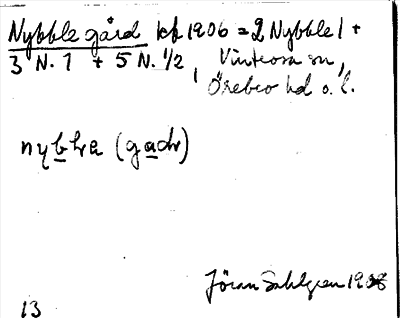 Nybble gård kf 1906 = 2 Nybble 1 +
3 N. 1 + 5 N. 1/2, Vintrosa sn,
Örebro hd o. l.
nybha (gadr)
Jöran Sahlgren 1908
13